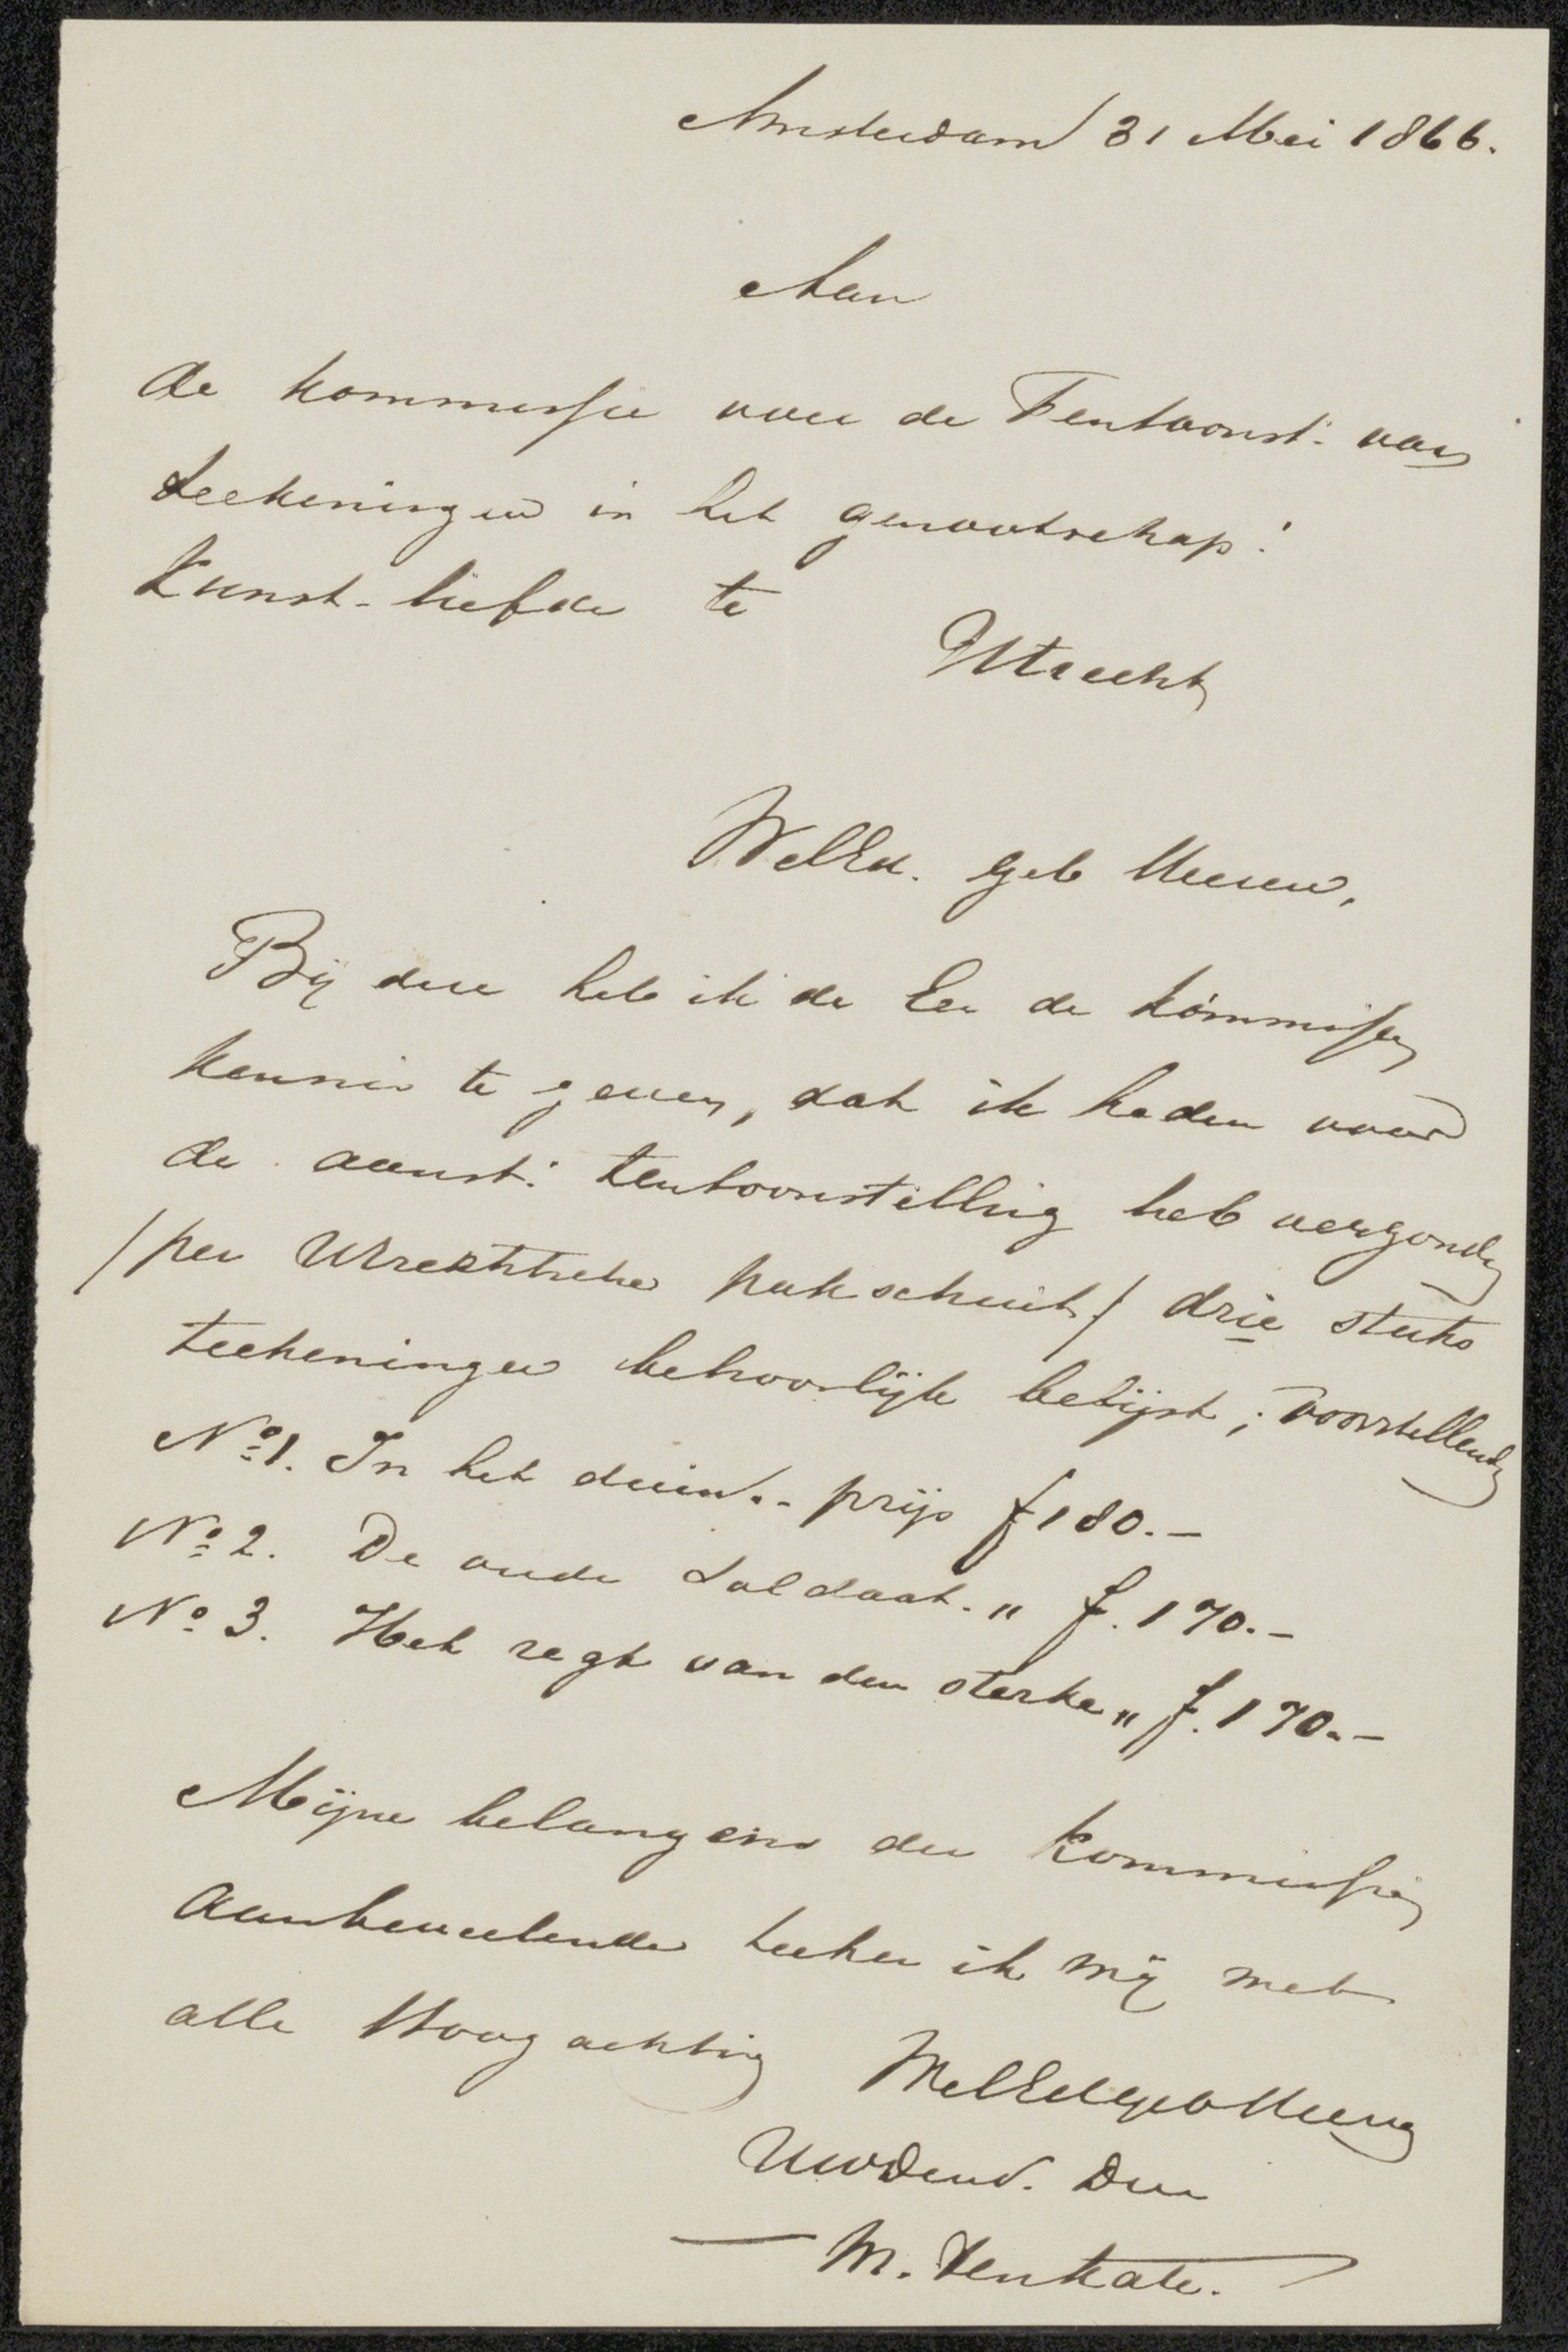 Amsterdam 31 Mei 1866.
Aan
de kommissie voor de Tentoonst: van
teekeningen in het genootschap:
Kunst-liefde te
Utrecht
WelEd. geb Heeren,
Bij deze heb ik de Eer de kommissie
kennis te geven, dat ik heden voor
de aanst: tentoonstelling heb verzonden
/per Utrechtsche pakschuit/ drie stuks
teekeningen behoorlijk belijst; voorstellende
No 1. In het duin.. prijs f 180.-
No 2. De oude soldaat. " f. 170.-
No 3. Het regt van den sterke " f. 170.-
Mijne belangens der kommissie
aanbevelende teeken ik mij met
alle Hoogachting
WelEdgeb Heeren
UwDend. Dr
M. Ten Kate.